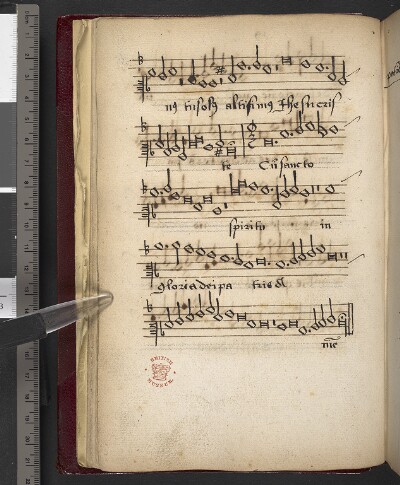 us tu solus altissimus Jhesu cris
te Cu sancto
spiritu in
gloria dei pa tris A
me
BRITISH MUSEUM